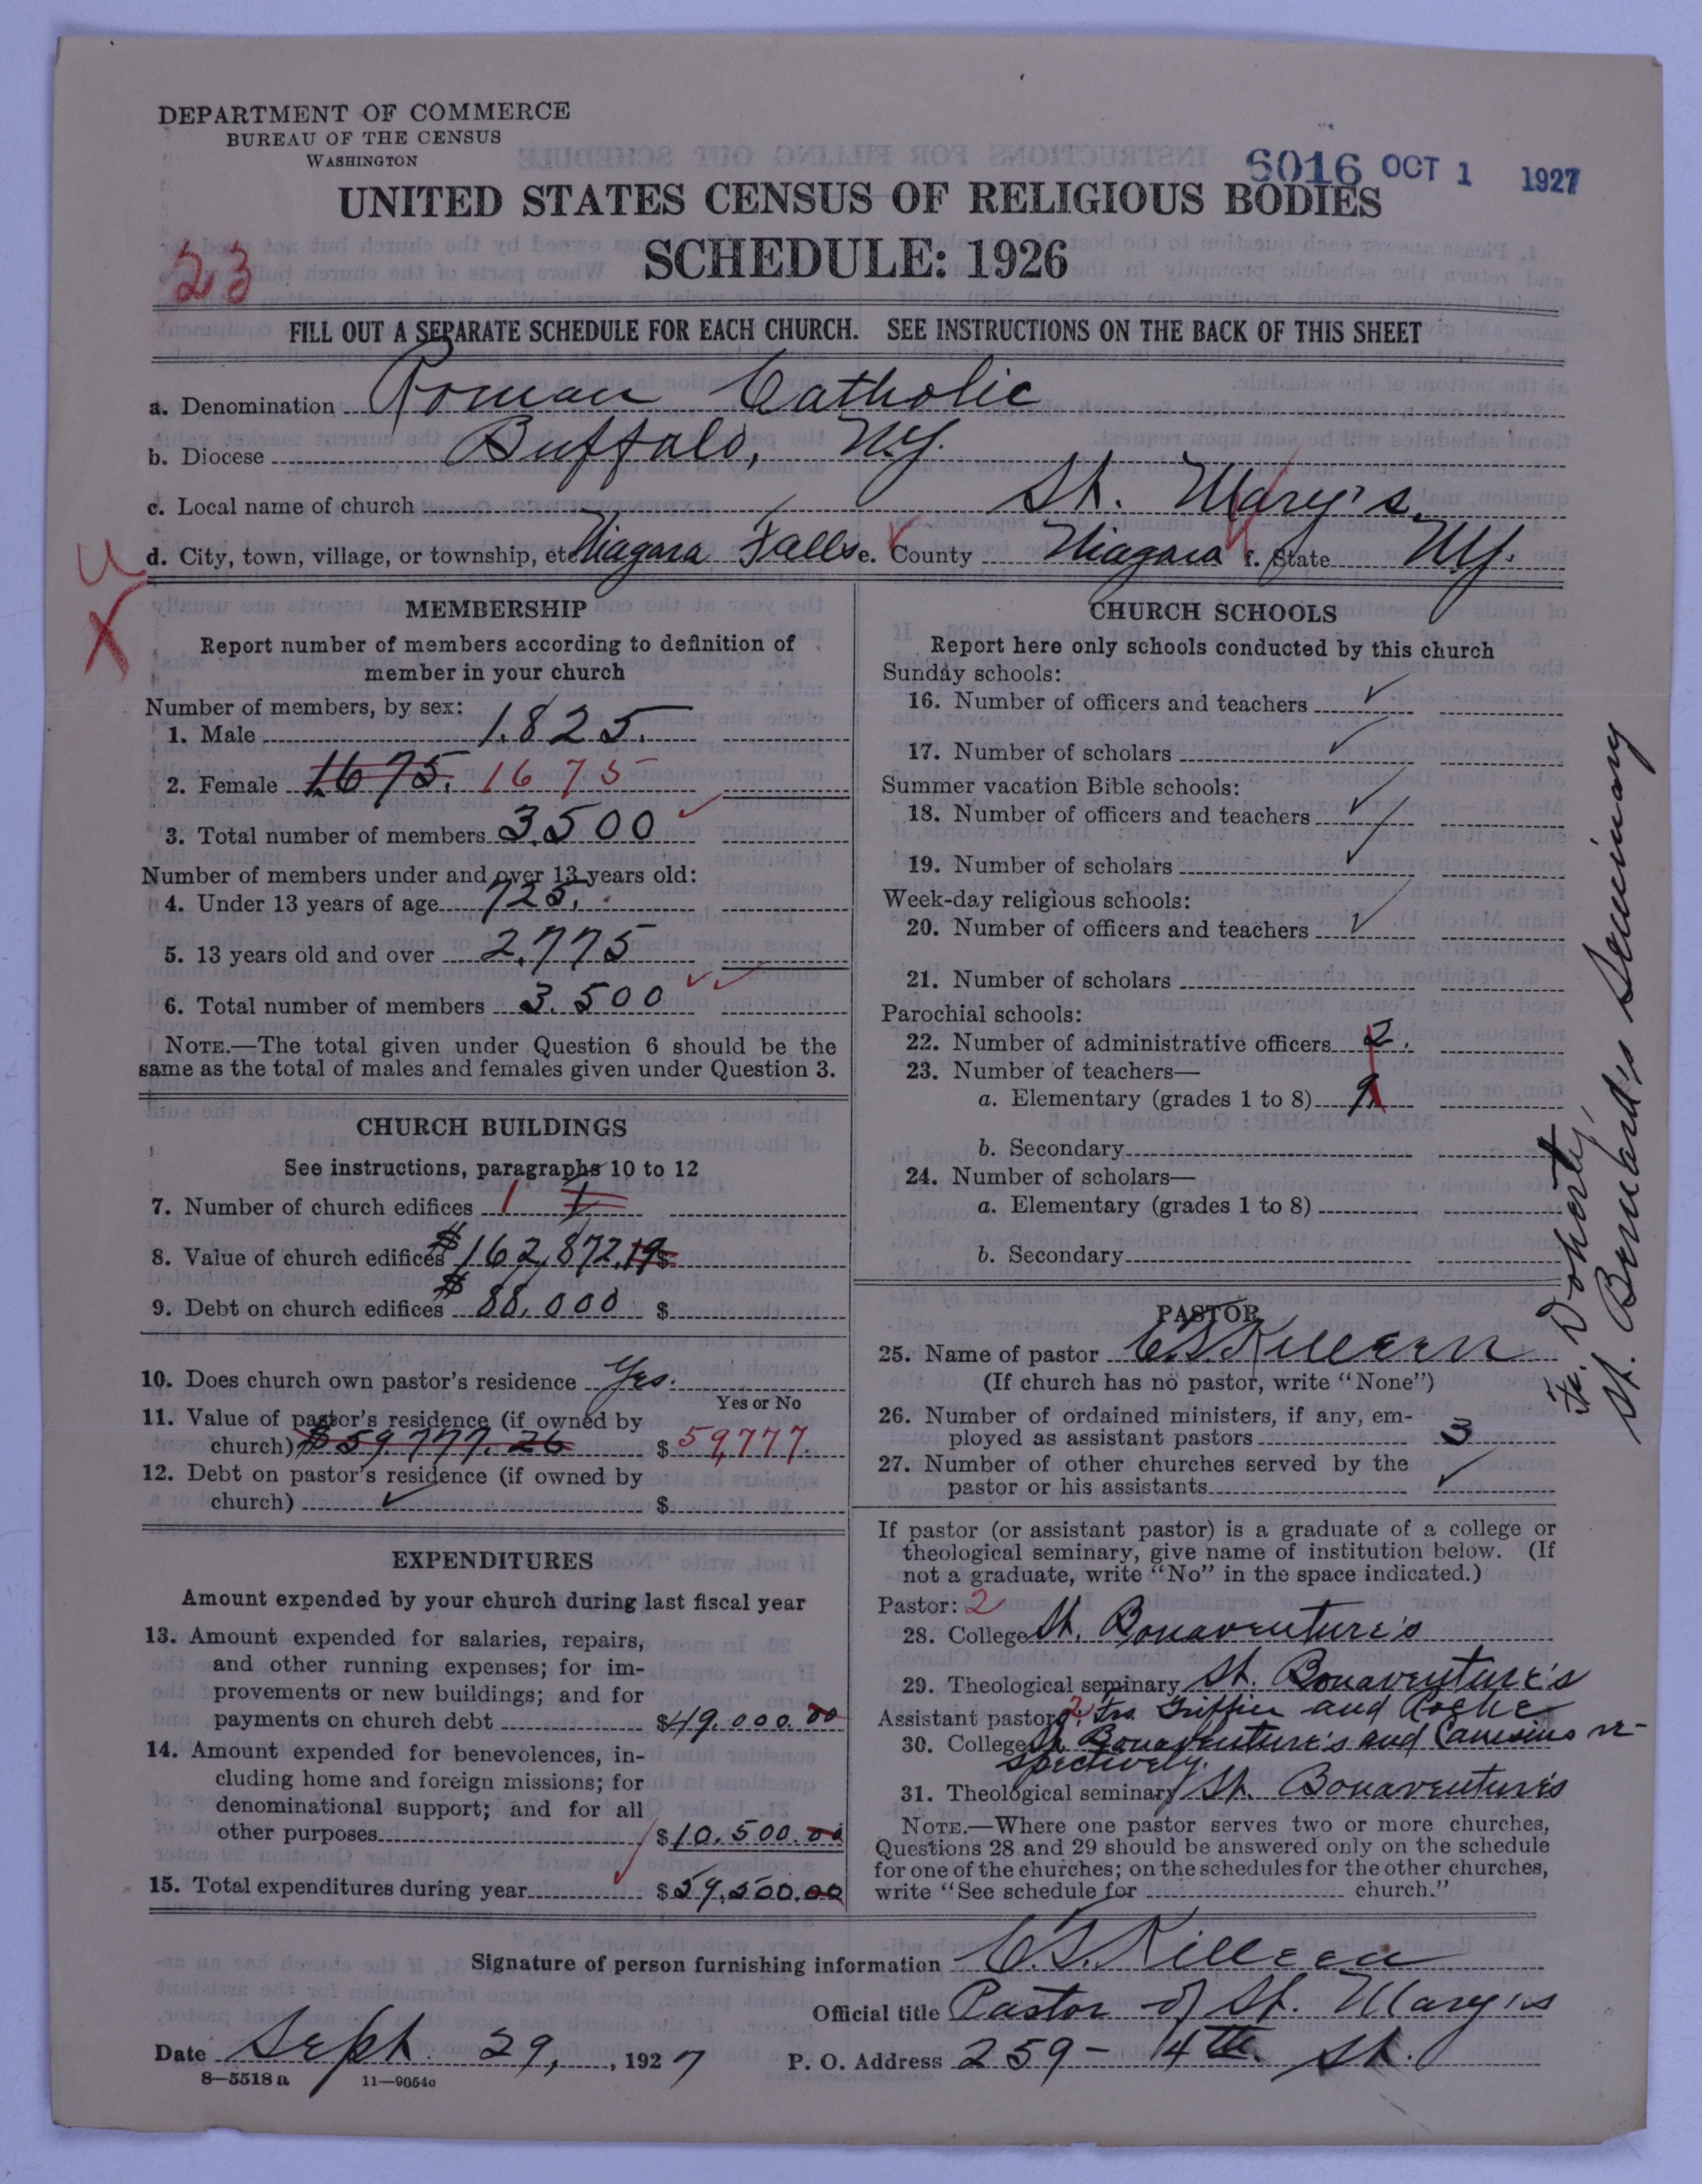 DEPARTMENT OF COMMERCE
BUREAU OF THE CENSUS
WASHINGTON
6016 OCT 1 1927
UNITED STATES CENSUS OF RELIGIOUS BODIES
SCHEDULE: 1926
23
FILL OUT A SEPARATE SCHEDULE FOR EACH CHURCH. SEE INSTRUCTIONS ON THE BACK OF THIS SHEET
a. Denomination Roman Catholic
b. Diocese Buffalo, N.Y.
c. Local name of church St. Mary's.
d. City, town, village, or township, etc Niagara Falls e. County Niagara f. State N.Y.
U
X
MEMBERSHIP
Report number of members according to definition of
member in your church
Number of members, by sex:
1. Male 1,825.
2. Female 1,675. 1675
3. Total number of members 3,500
Number of members under and over 13 years old:
4. Under 13 years of age 725.
5. 13 years old and over 2,775
6. Total number of members 3,500
NOTE.—The total given under Question 6 should be the
same as the total of males and females given under Question 3.
CHURCH BUILDINGS
See instructions, paragraphs 10 to 12
7. Number of church edifices 1 1
8. Value of church edifices $162,872.19 $
9. Debt on church edifices $88,000 $
10. Does church own pastor's residence Yes.
Yes or No
11. Value of pastor's residence (if owned by
church) $59,777.26 $59,777.
12. Debt on pastor's residence (if owned by
church) ✓ $
EXPENDITURES
Amount expended by your church during last fiscal year
13. Amount expended for salaries, repairs,
and other running expenses; for im-
provements or new buildings; and for
payments on church debt $49,000.00
14. Amount expended for benevolences, in-
cluding home and foreign missions; for
denominational support; and for all
other purposes $10,500.00
15. Total expenditures during year $59,500.00
CHURCH SCHOOLS
Report here only schools conducted by this church
Sunday schools:
16. Number of officers and teachers ✓
17. Number of scholars ✓
Summer vacation Bible schools:
18. Number of officers and teachers ✓
19. Number of scholars ✓
Week-day religious schools:
20. Number of officers and teachers ✓
21. Number of scholars
Parochial schools:
22. Number of administrative officers 2.
23. Number of teachers—
a. Elementary (grades 1 to 8) 9
b. Secondary
24. Number of scholars—
a. Elementary (grades 1 to 8)
b. Secondary
PASTOR
25. Name of pastor C.S. Killeen
(If church has no pastor, write "None")
26. Number of ordained ministers, if any, em-
ployed as assistant pastors 3
27. Number of other churches served by the
pastor or his assistants ✓
If pastor (or assistant pastor) is a graduate of a college or
theological seminary, give name of institution below. (If
not a graduate, write "No" in the space indicated.)
Pastor: 2
28. College St. Bonaventure's
29. Theological seminary St. Bonaventure's
Assistant pastor: 2 Frs. Griffin and Roche
30. College St. Bonaventure's and Canisius re-
spectively.
31. Theological seminary St. Bonaventure's
NOTE.—Where one pastor serves two or more churches,
Questions 28 and 29 should be answered only on the schedule
for one of the churches; on the schedules for the other churches,
write "See schedule for church."
Fr. Doherty,
St. Bernard's Seminary
Signature of person furnishing information C.S. Killeen
Official title Pastor of St. Mary's
Date Sept. 29, 1927 P. O. Address 259- 4th. St.
8—5518a 11—9054c